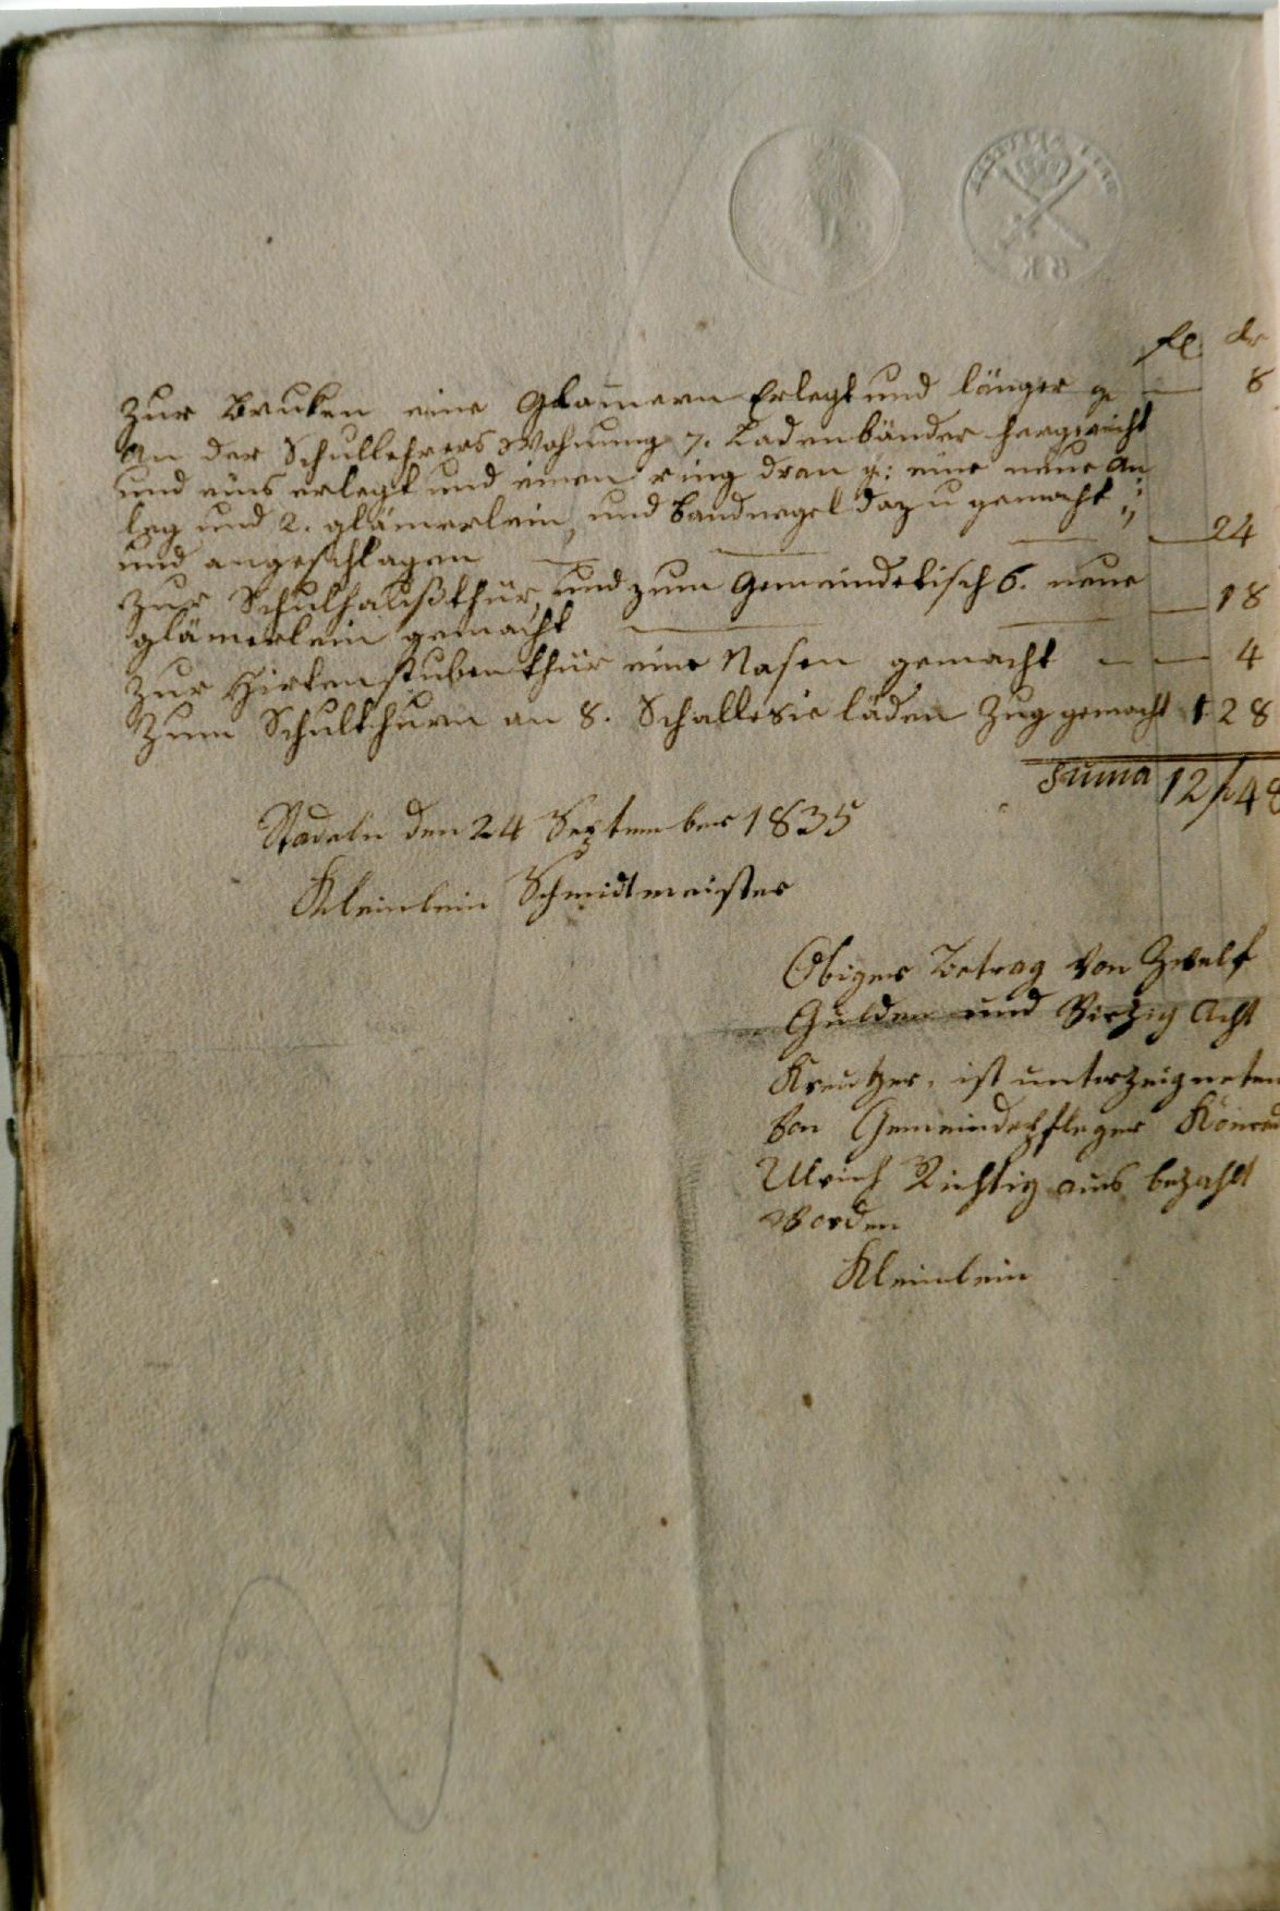 fl kr
Zur Bruken eine Glamern Erlegt und länger g: — 8
An der Schullehrers Wohnung 7. Ladenbänder hergericht
und eins erlegt und einen ring dran g: eine neue An
leg und 2. glämerlein, und Bandnegel dazu gemacht ;
und angeschlagen — 24
Zur Schulhaußthür, und zum Gemeindetisch 6. neue
glämerlein gemacht — 18
Zur Hirtenstubenthür eine Nasen gemacht — — 4
Zum Schulthurn an 8. Schallesie läden Zug gemacht 1 28
Suma 12 48
Stadeln den 24 September 1835
Kleinlein Schmidtmeister
Obiger Betrag Von Zwelf
Gulden und Vierzig Acht
Kreutzer, ist unterzeigneten
Von Gemeindepfleger Konrad
Ulrich Richtig aus bezahlt
Worden
Kleinlein